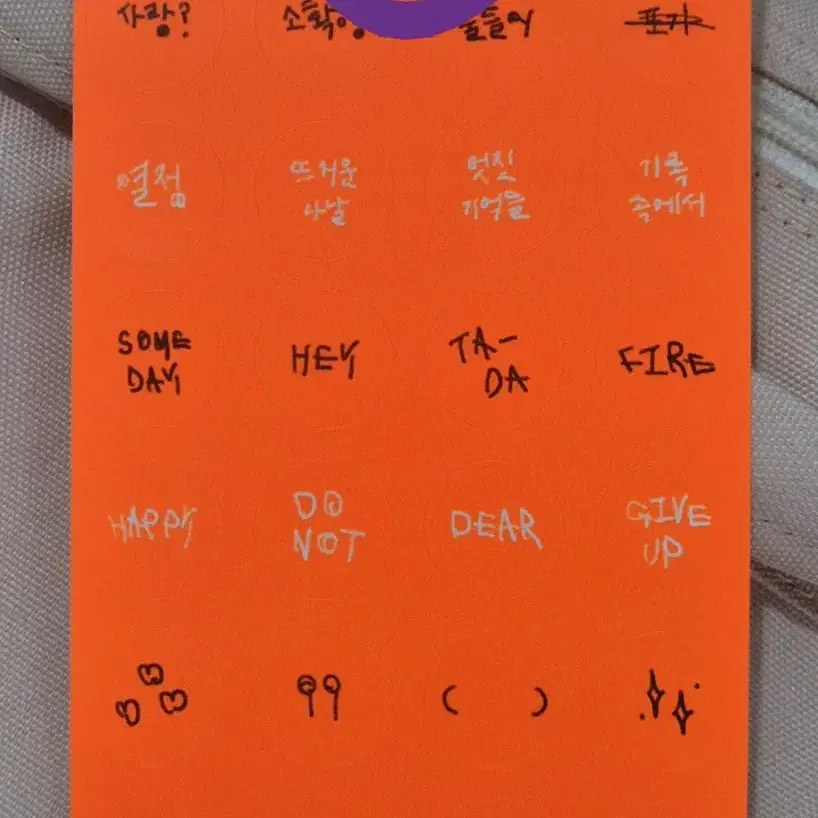 사랑?
소확행
포기
열정
뜨거운
나날
멋진
기억들
기록
속에서
SOME
DAY
HEY
TA-
DA
FIRE
HAPPY
DO
NOT
DEAR
GIVE
UP
( )